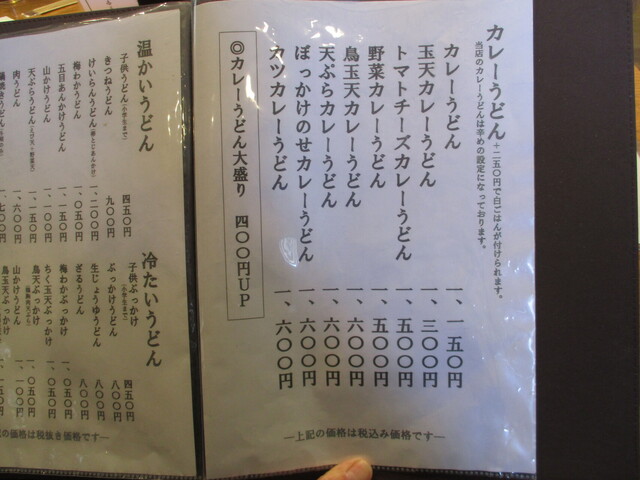 カレーうどん +二五〇円で白ごはんが付けられます。
当店のカレーうどんは辛めの設定になっております。
カレーうどん 一、一五〇円
玉天カレーうどん 一、三〇〇円
トマトチーズカレーうどん 一、五〇〇円
野菜カレーうどん 一、五〇〇円
鳥玉天カレーうどん 一、六〇〇円
天ぷらカレーうどん 一、六〇〇円
ぼっかけのせカレーうどん 一、六〇〇円
カツカレーうどん 一、六〇〇円
◎カレーうどん大盛り 四〇〇円UP
―上記の価格は税込み価格です―
温かいうどん
子供うどん(小学生まで) 四五〇円
きつねうどん 九〇〇円
けいらんうどん(卵とじあんかけ) 一、二〇〇円
梅わかうどん 一、〇五〇円
五目あんかけうどん 一、一五〇円
山かけうどん 一、一〇〇円
天ぷらうどん(えび天・野菜天) 一、一五〇円
肉うどん 一、六〇〇円
うどん 一、七〇〇円
冷たいうどん
子供ぶっかけ(小学生まで) 四五〇円
ぶっかけうどん 八〇〇円
生じょうゆうどん 八〇〇円
ざるうどん 八〇〇円
梅わかぶっかけ 一、〇五〇円
ちく玉天ぶっかけ 一、〇五〇円
鳥天ぶっかけ 一、〇五〇円
山かけうどん 一、一〇〇円
鳥玉天ぶっかけ 一、一五〇円
の価格は税抜き価格です―